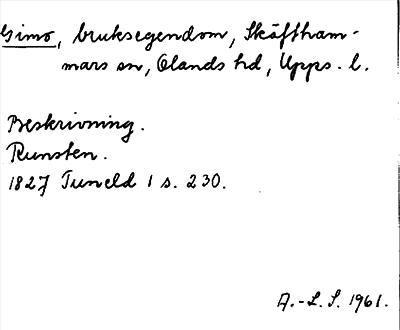 Gimo, bruksegendom, Skäftham-
mars sn, Olands hd, Upps. l.
Beskrivning.
Runsten.
1827 Tuneld 1 s. 230.
A.-L. S. 1961.